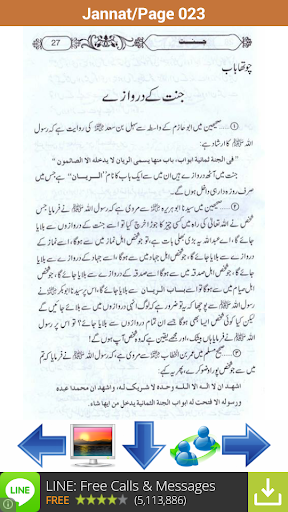 Jannat/Page 023
27
جنت
چوتھا باب
جنت کے دروازے
① ...... صحیحین میں ابو حازم کے واسطہ سے سہل بن سعد ﷜ کی روایت ہے کہ رسول
اللہ ﷺ کا ارشاد ہے:
"فی الجنة ثمانية ابواب، باب منها يسمى الريان لا يدخله الا الصائمون"
جنت میں آٹھ دروازے ہیں ان میں سے ایک باب کا نام "الریان" ہے جس میں
صرف روزہ دار ہی داخل ہوں گے۔
② ...... صحیحین میں سیدنا ابو ہریرہ سے مروی ہے کہ رسول اللہ ﷺ نے فرمایا جس
شخص نے اللہ تعالیٰ کی راہ میں کسی چیز کا جوڑا خرچ کیا تو اسے جنت کے دروازوں سے بلایا
جائے گا، اے عبداللہ یہ بڑی بھلی بات ہے، جو شخص اہل نماز میں سے ہوگا اسے نماز کے
دروازے سے بلایا جائے گا، جو شخص اہل جہاد میں سے ہوگا اسے جہاد کے دروازے سے بلایا
جائے گا، جو شخص اہل صدقہ میں سے ہوگا اسے صدقہ کے دروازے سے بلایا جائے گا، جو شخص
اہل صیام میں سے ہوگا اسے باب الریان سے بلایا جائے گا، اس پر سیدنا ابوبکر
نے رسول اللہ ﷺ سے پوچھا کہ یہ تو ضروری ہے کہ لوگ انہی دروازوں میں سے بلائے جائیں گے
لیکن کیا کوئی شخص ایسا بھی ہوگا جسے ان تمام دروازوں سے بلایا جائے گا؟ تو اس پر رسول
اللہ ﷺ نے فرمایا ہاں بیشک، اور مجھے یقین ہے کہ وہ شخص آپ ہوں گے۔
③ ...... صحیح مسلم میں عمر بن الخطاب سے مروی ہے کہ رسول اللہ ﷺ نے فرمایا کہ تم
میں سے جو شخص پورا وضو کرے، پھر یہ کہے:
اشهد ان لا اله الا الله وحده لا شريک له، واشهد ان محمدا عبده
ورسوله الا فتحت له ابواب الجنة الثمانية يدخل من ايها شاء.
LINE
LINE: Free Calls & Messages
FREE (5,113,886)